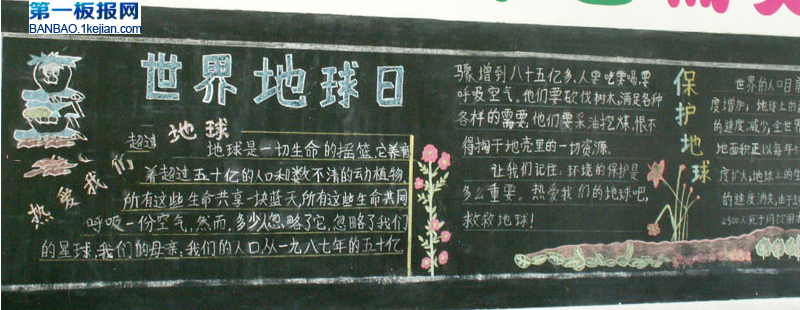 第一板报网
BANBAO.1kejian.com
世界地球日
热爱我们
地球
超过
地球是一切生命的摇篮,它养育
着超过五十亿的人口和数不清的动植物,
所有这些生命共享一块蓝天,所有这些生命共同
呼吸一份空气,然而,多少人忽略了它,忽略了我们
的星球,我们的母亲,我们的人口从一九八七年的五十亿
骤增到八十五亿多,人要吃要喝要
呼吸空气,他们要砍伐树木,满足各种
各样的需要,他们要采油挖煤,恨不
得掏干地壳里的一切资源.
让我们记住,环境的保护是
多么重要。热爱我们的地球吧,
救救地球!
保护地球
世界的人口日前
度增加;地球上的
的速度,减少;全世界
地面积正以每年
度扩大,地球上的生
的速度消失,由于
2500人死于